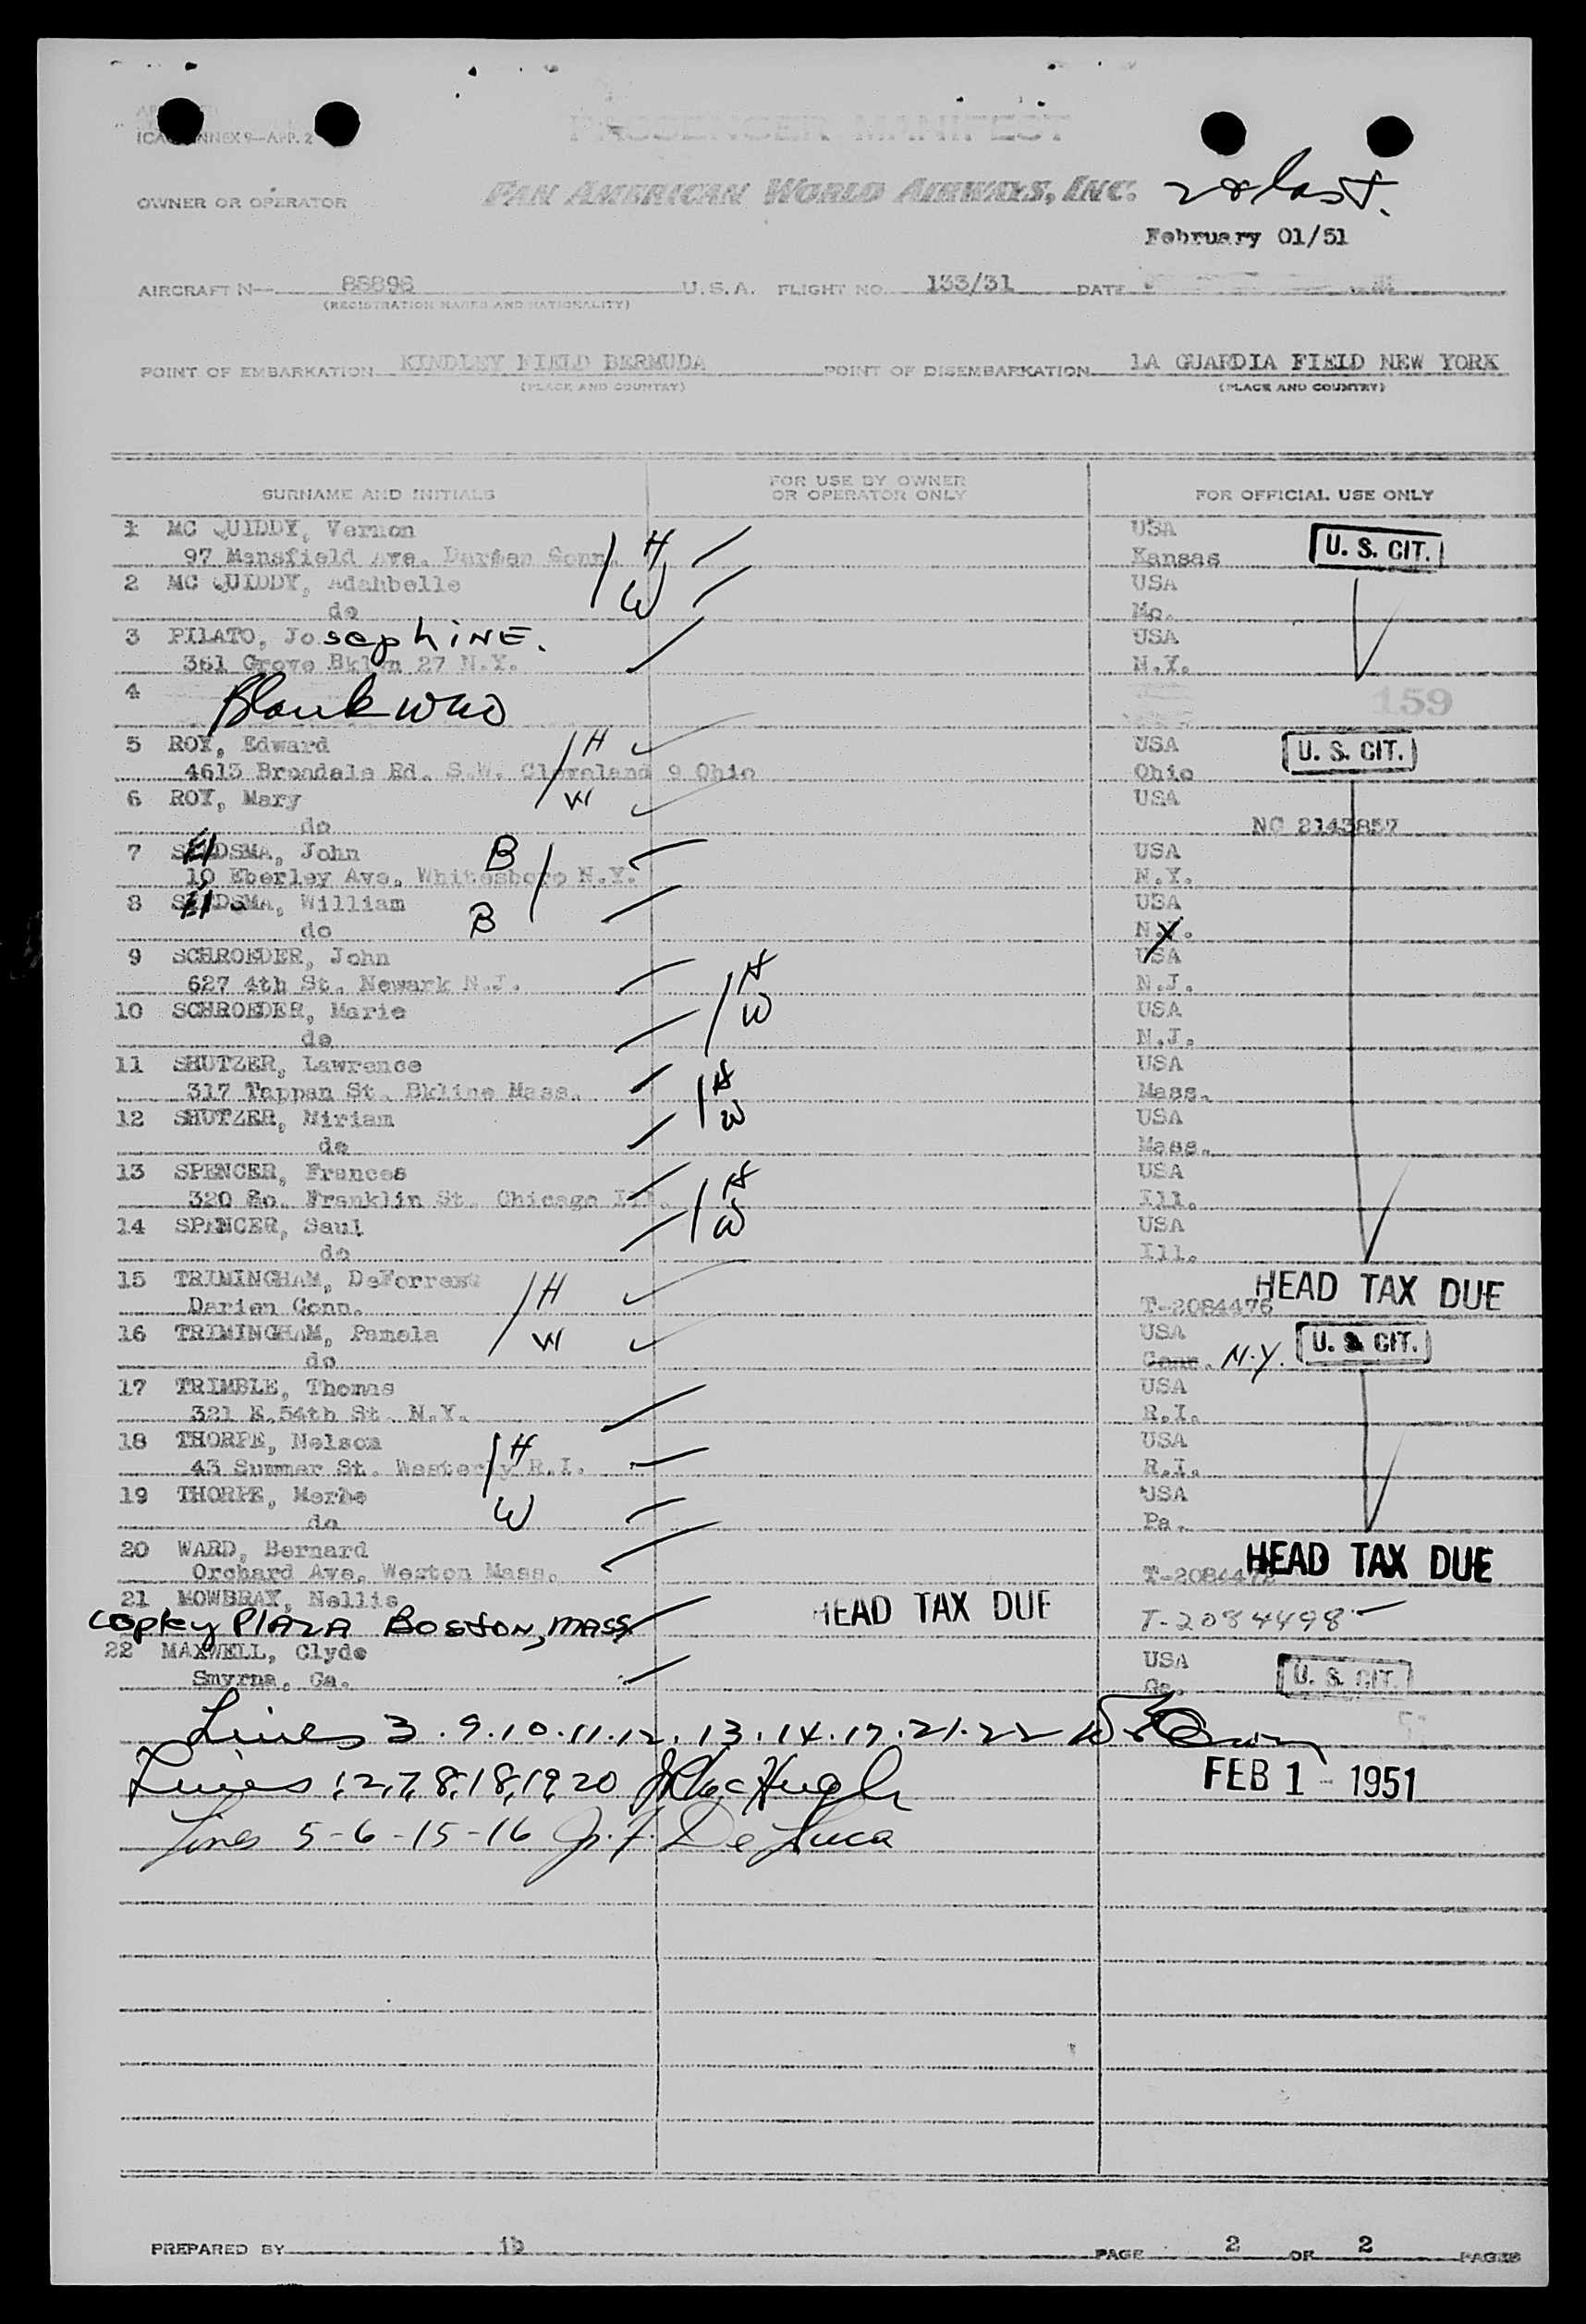 ICAO ANNEX 9—APP. 2
PASSENGER MANIFEST
OWNER OR OPERATOR PAN AMERICAN WORLD AIRWAYS, INC. 2 & last.
February 01/51
AIRCRAFT N— 88896 U.S.A. FLIGHT NO. 133/31 DATE
(REGISTRATION MARKS AND NATIONALITY)
POINT OF EMBARKATION KINDLEY FIELD BERMUDA POINT OF DISEMBARKATION LA GUARDIA FIELD NEW YORK
(PLACE AND COUNTRY) (PLACE AND COUNTRY)
SURNAME AND INITIALS FOR USE BY OWNER OR OPERATOR ONLY FOR OFFICIAL USE ONLY
1 MC QUIDDY, Vernon H USA U. S. CIT.
97 Mansfield Ave. Darien Conn. Kansas
2 MC QUIDDY, Adahbelle W USA
do Mo.
3 PILATO, Josephine. USA
361 Grove Bklyn 27 N.Y. N.Y.
4 Blank 159
5 ROY, Edward H USA U. S. CIT.
4613 Broadale Rd. S.W. Cleveland 9 Ohio Ohio
6 ROY, Mary W USA
do NC 2143857
7 John B USA
10 Eberley Ave. Whitesboro N.Y. N.Y.
8 William B USA
do N.Y.
9 SCHROEDER, John H USA
627 4th St. Newark N.J. N.J.
10 SCHROEDER, Marie W USA
do N.J.
11 SHUTZER, Lawrence H USA
317 Tappan St. Bkline Mass. Mass.
12 SHUTZER, Miriam W USA
do Mass.
13 SPENCER, Frances H USA
320 So. Franklin St. Chicago Ill. Ill.
14 SPENCER, Saul W USA
do Ill.
15 TRIMINGHAM, DeForrest H HEAD TAX DUE
Darien Conn. T-2084476
16 TRIMINGHAM, Pamela W USA U. S. CIT.
do Conn. N.Y.
17 TRIMBLE, Thomas USA
321 E.54th St. N.Y. R.I.
18 THORPE, Nelson H USA
43 Summer St. Westerly R.I. R.I.
19 THORPE, W USA
do Pa.
20 WARD, Bernard HEAD TAX DUE
Orchard Ave. Weston Mass.
21 MOWBRAY, Nellie HEAD TAX DUE T-2084498
Copley PLAZA BOSTON, MASS
22 MAXWELL, Clyde USA U. S. CIT.
Smyrna, Ga. Ga.
Lines 3.9.10.11.12.13.14.17.21.22
Lines 1,2,7,8,18,19,20 FEB 1 - 1951
Lines 5-6-15-16 J. F. De Luca
PREPARED BY ib PAGE 2 OF 2 PAGES